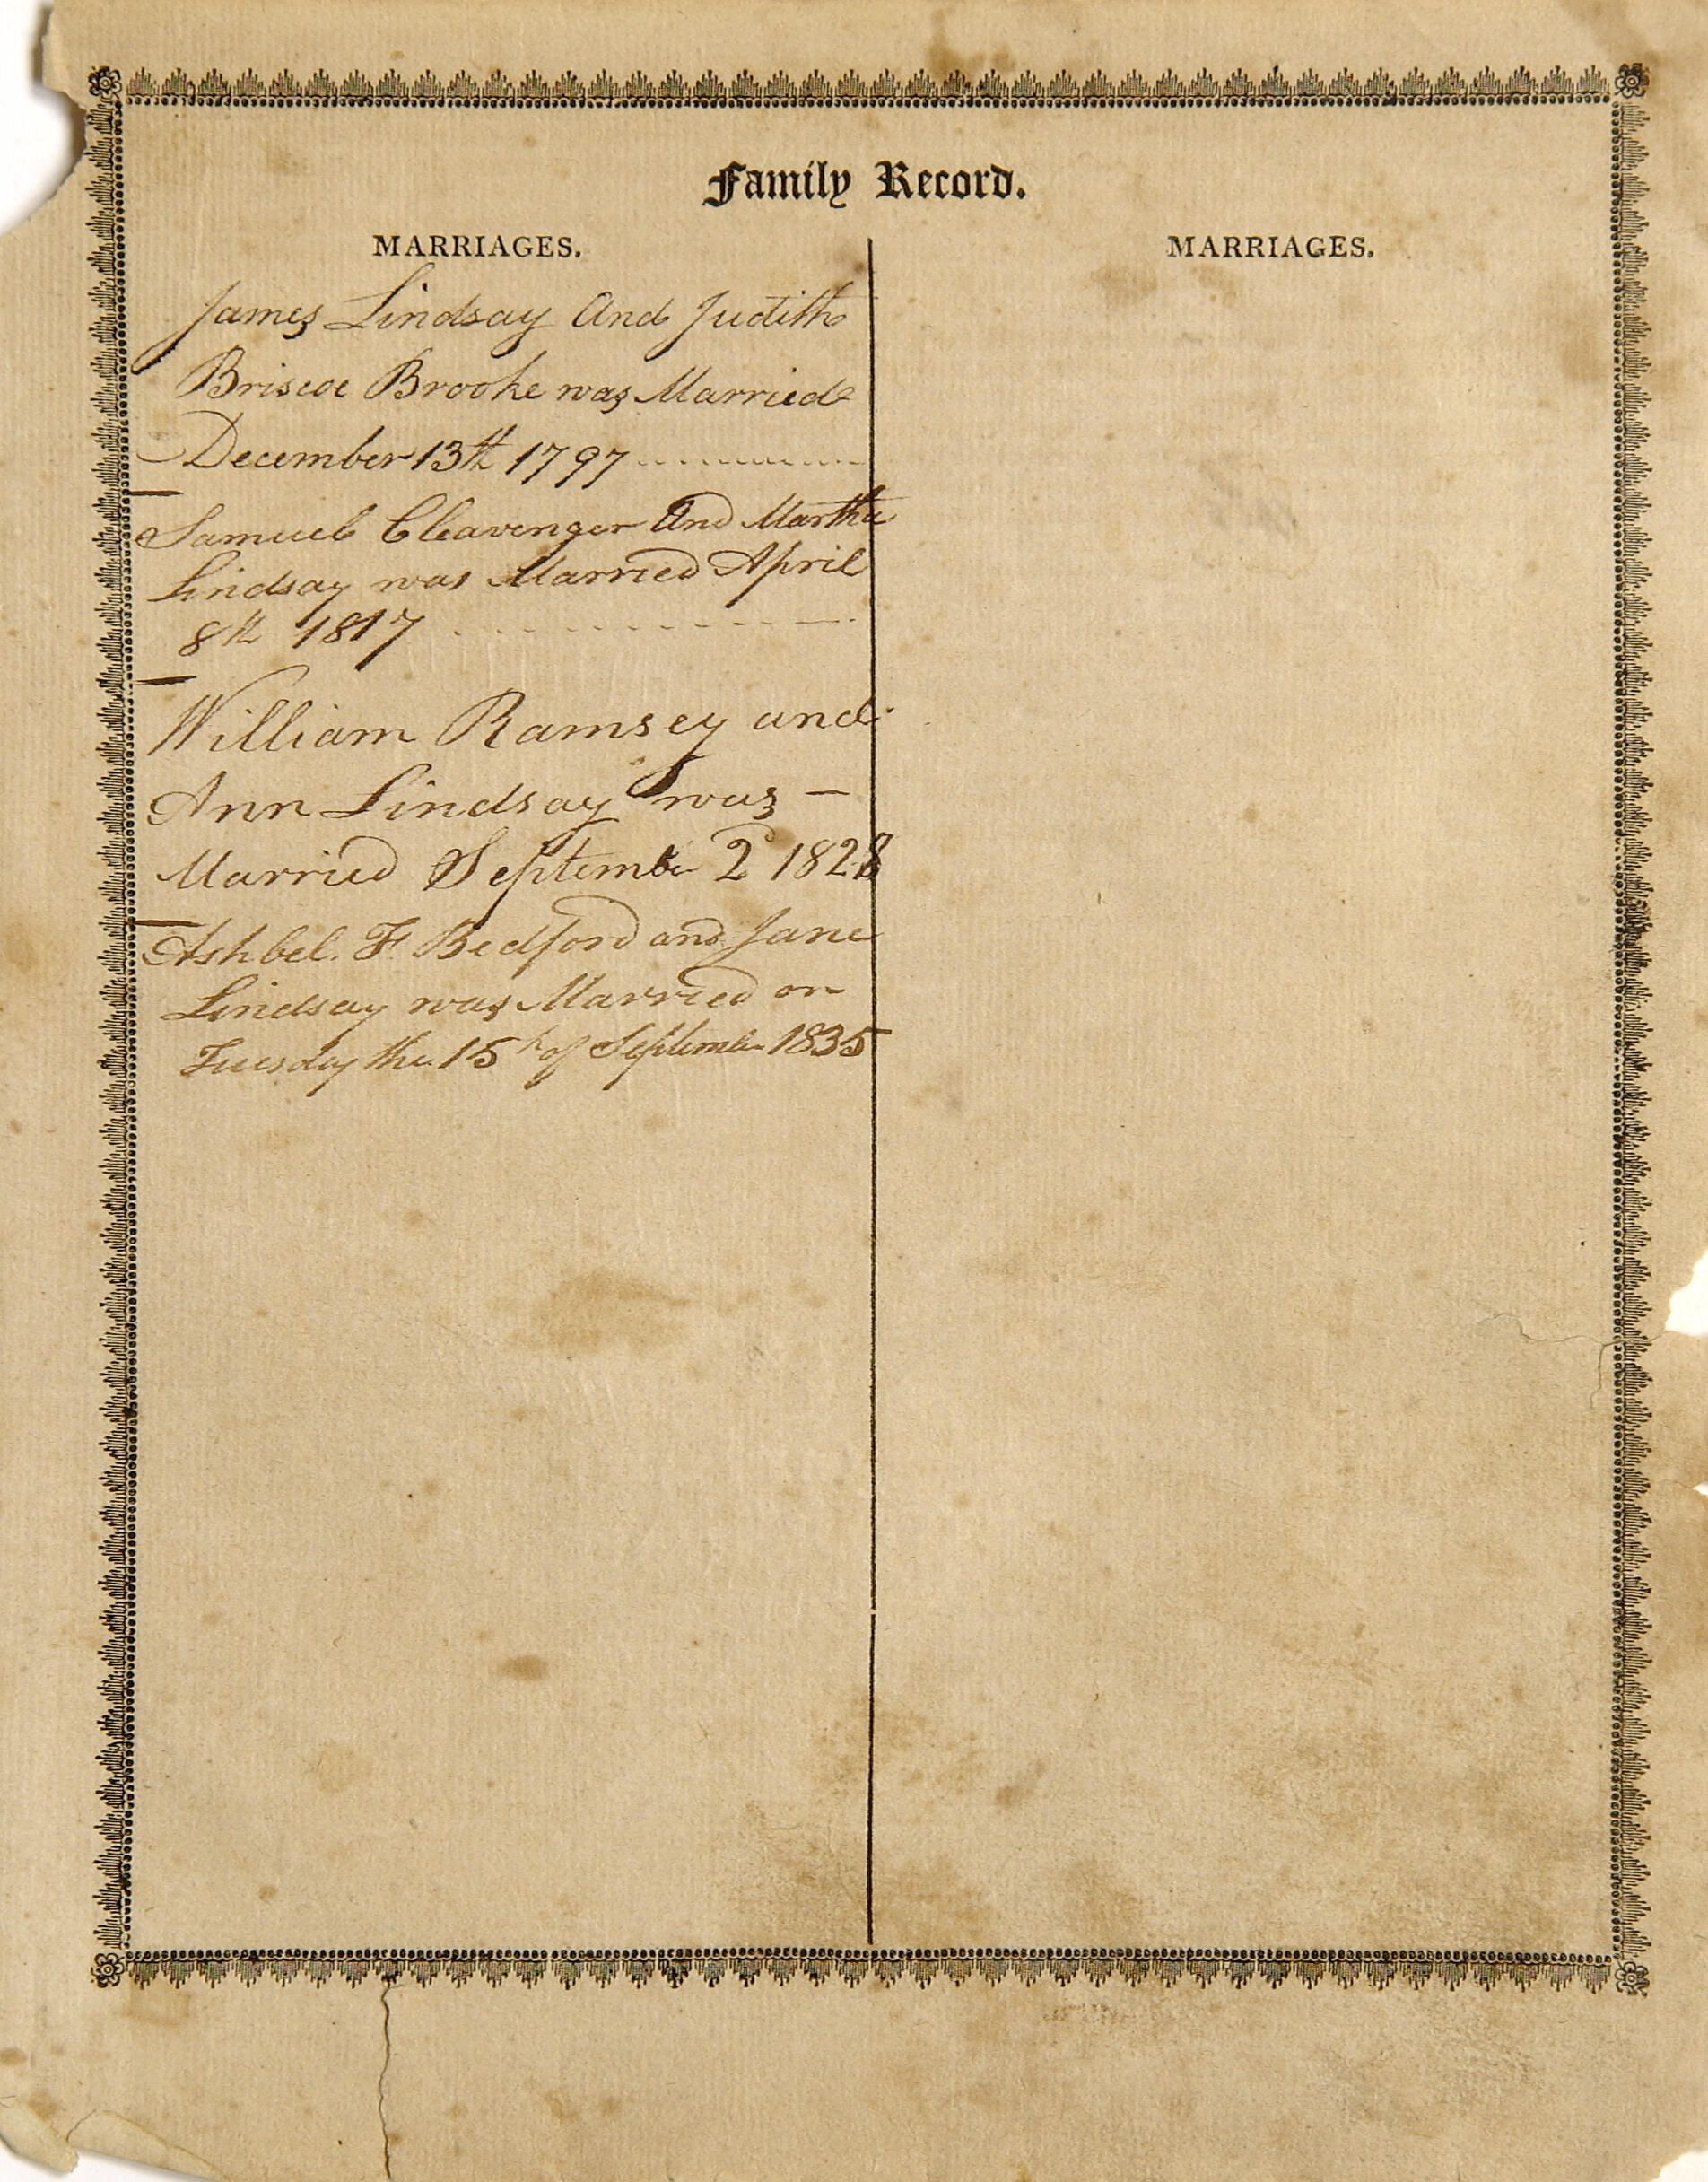 Family Record.
MARRIAGES.
James Lindsay And Judith
Briscoe Brooke was Married
December 13th 1797
Samuel Cleavenger And Martha
Lindsay was Married April
8th 1817
William Ramsey and
Ann Lindsay was —
Married September 2d 1828
Ashbel. F. Bedford and Jane
Lindsay was Married on
Tuesday the 15th of September 1835
MARRIAGES.